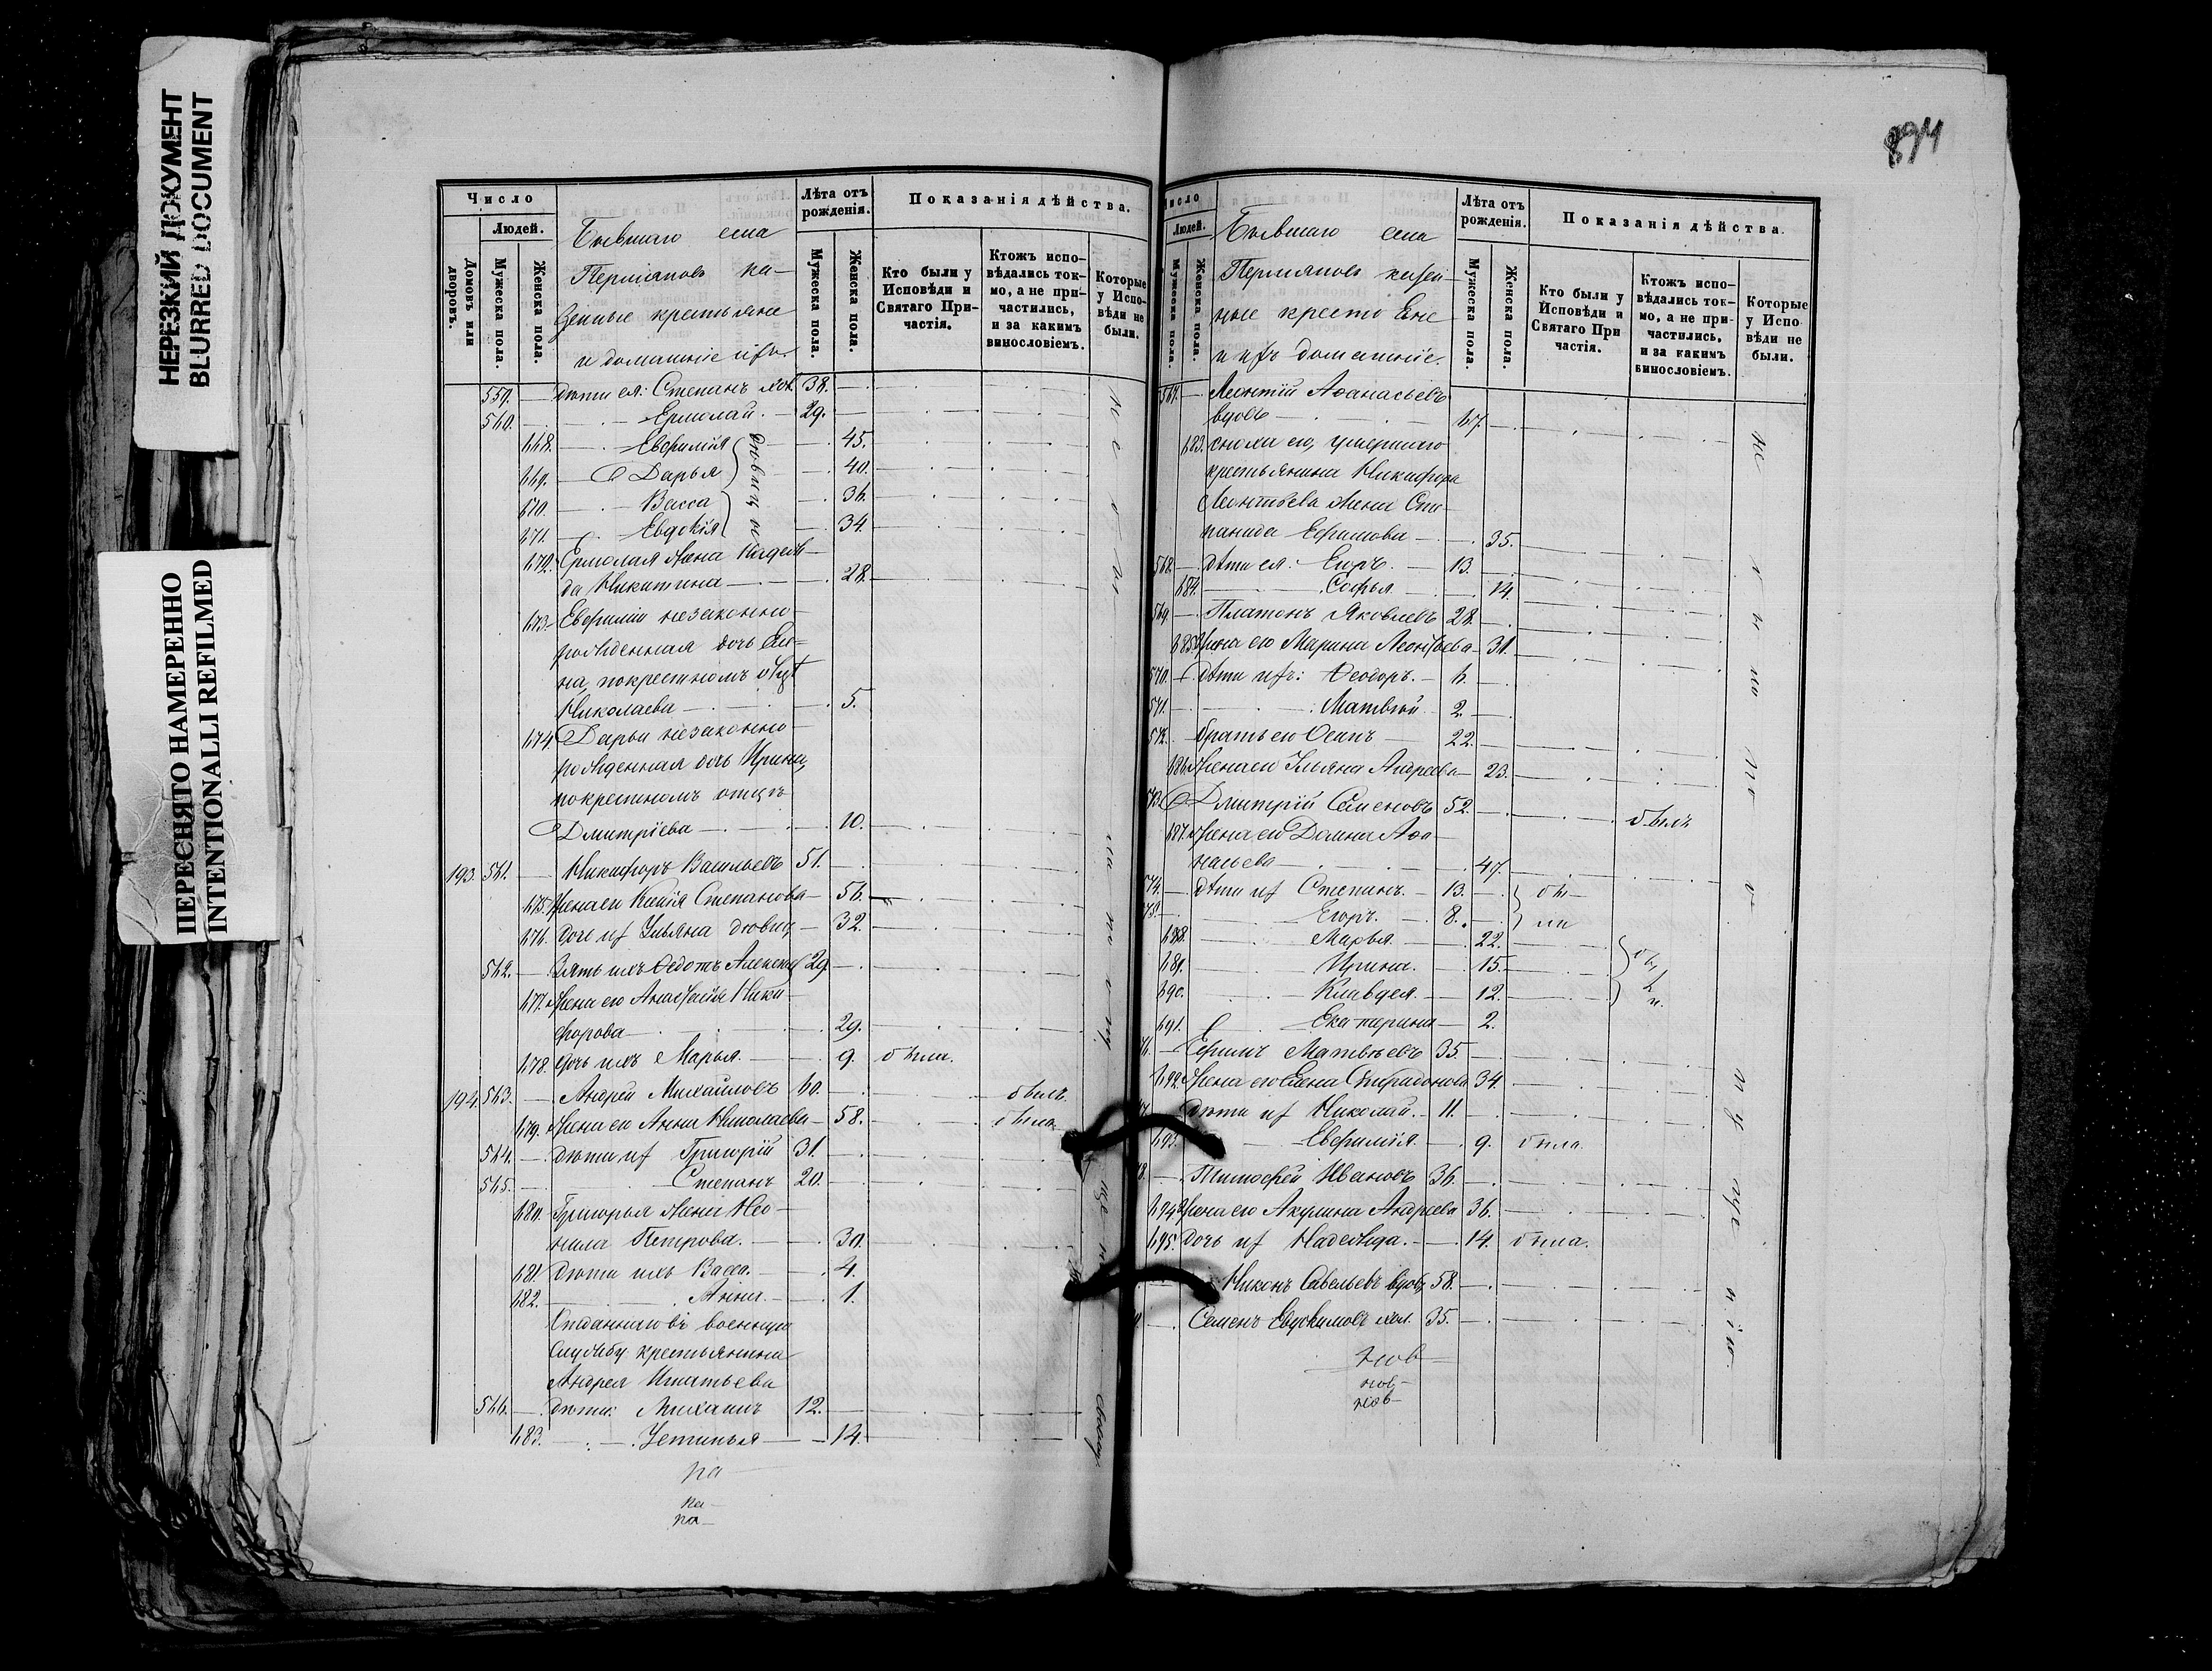 НЕРЕЗКИЙ ДОКУМЕНТ
BLURRED DOCUMENT
ПЕРЕСНЯТО НАМЕРЕННО
INTENTIONALLI REFILMED
Число
Людей.
Домовъ или дворовъ.
Мужеска пола.
Женска пола.
Бывшаго села
Пермяковъ ка-
зенные крестьяне
и домашніе ихъ.
Лѣта отъ рожденія.
Мужеска пола.
Женска пола.
Показанія дѣйства.
Кто были у Исповѣди и Святаго При-частія.
Ктожъ испо-вѣдались ток-мо, а не при-частились, и за какимъ винословіемъ.
Которые у Испо-вѣди не были.
559. — дѣти ея: Степанъ хол. 38.
560. Ермолай. — 29.
668. Евфимія 45.
669. Дарья 40.
670. Васса 36.
671. Евдокія 34.
дѣвицы
672. Ермолая жена Надеж-
да Никитина — 28.
673. Евфиміи незаконно-
рожденная дочь
на, по крестномъ отцѣ
Николаева — 5.
674. Дарьи незаконно-
рожденная дочь Ирина,
по крестномъ отцѣ
Дмитріева — 10.
193. 561. — Никифоръ Васильевъ 51.
675. жена его Ксенія Степанова — 56.
676. дочь их Ульяна дѣвица — 32.
562. — Зять ихъ Федотъ Алексѣев 29.
677. жена его Анастасія Ники-
форова — 29.
678. дочь ихъ Марья. — 9. была.
194. 563. — Андрей Михайловъ 60. былъ.
679. жена его Анна Николаева — 58. была.
564. — дѣти их Григорій 31.
565. — Степанъ 20.
680. Григорья жена Нео-
нила Петрова. — 30.
681. дѣти ихъ Васса. — 4.
682. Анна. — 1.
Отданнаго въ военную
службу крестьянина
Андрея Игнатьева
566. — дѣти: Михаилъ 12.
683. — Устинья — 14.
ра
ка-
ра-
894
Число
Людей.
Мужеска пола.
Женска пола.
Бывшаго села
Пермяковъ казен-
ные крестьяне
и ихъ домашніе.
Лѣта отъ рожденія.
Мужеска пола.
Женска пола.
Показанія дѣйства.
Кто были у Исповѣди и Святаго При частія.
Ктожъ испо-вѣдались ток-мо, а не при-частились, и за какимъ винословіемъ.
Которые у Испо-вѣди не были.
567. — Леонтій Аѳанасьевъ
вдовъ — 67.
683. сноха его, умершаго
крестьянина Никифора
Леонтьева жена Сте-
панида Ефимова — 35.
568. — дѣти ея: Егоръ. — 13.
684. Софья — 14.
569. — Платонъ Яковлевъ 28.
685. жена его Марина Леонтьева — 31.
570. — дѣти ихъ: Ѳеодоръ. — 6.
571. — Матвѣй 2.
572. братъ его Осипъ — 22.
686. жена его Ульяна Андреева — 23.
573. Дмитрій Семеновъ 52. былъ
687. жена его Домна Аѳа-
насьева — 47.
574. — дѣти их Степанъ. — 13.
575. — Егоръ. — 8.
бы-
ли
688. Марья. — 22.
689. Ирина. — 15.
690. Клавдея. — 12.
691. Екатерина — 2.
— Ефимъ Матвѣевъ 35.
692. жена его Елена Спиридонова 34.
дѣти их Николай. — 11.
693. Евфимія. — 9. была.
— Тимофей Ивановъ 36.
694. жена его Акулина Андреева 36.
695. дочь их Надежда. — 14. была.
Никонъ Савельевъ вдовъ 58.
— Семенъ Евдокимовъ хол. 35.